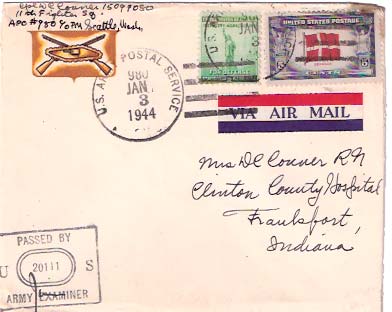 Cpl D C Conner 15097050
11th Fighter Sq.
APO #980 % PM Seattle, Wash.
U.S. ARMY POSTAL SERVICE
980
JAN
3
1944
FOR DEFENSE
UNITED STATES POSTAGE
VIA AIR MAIL
Mrs D C Conner R N
Clinton County Hospital
Frankfort,
Indiana
PASSED BY
U 20111 S
ARMY EXAMINER